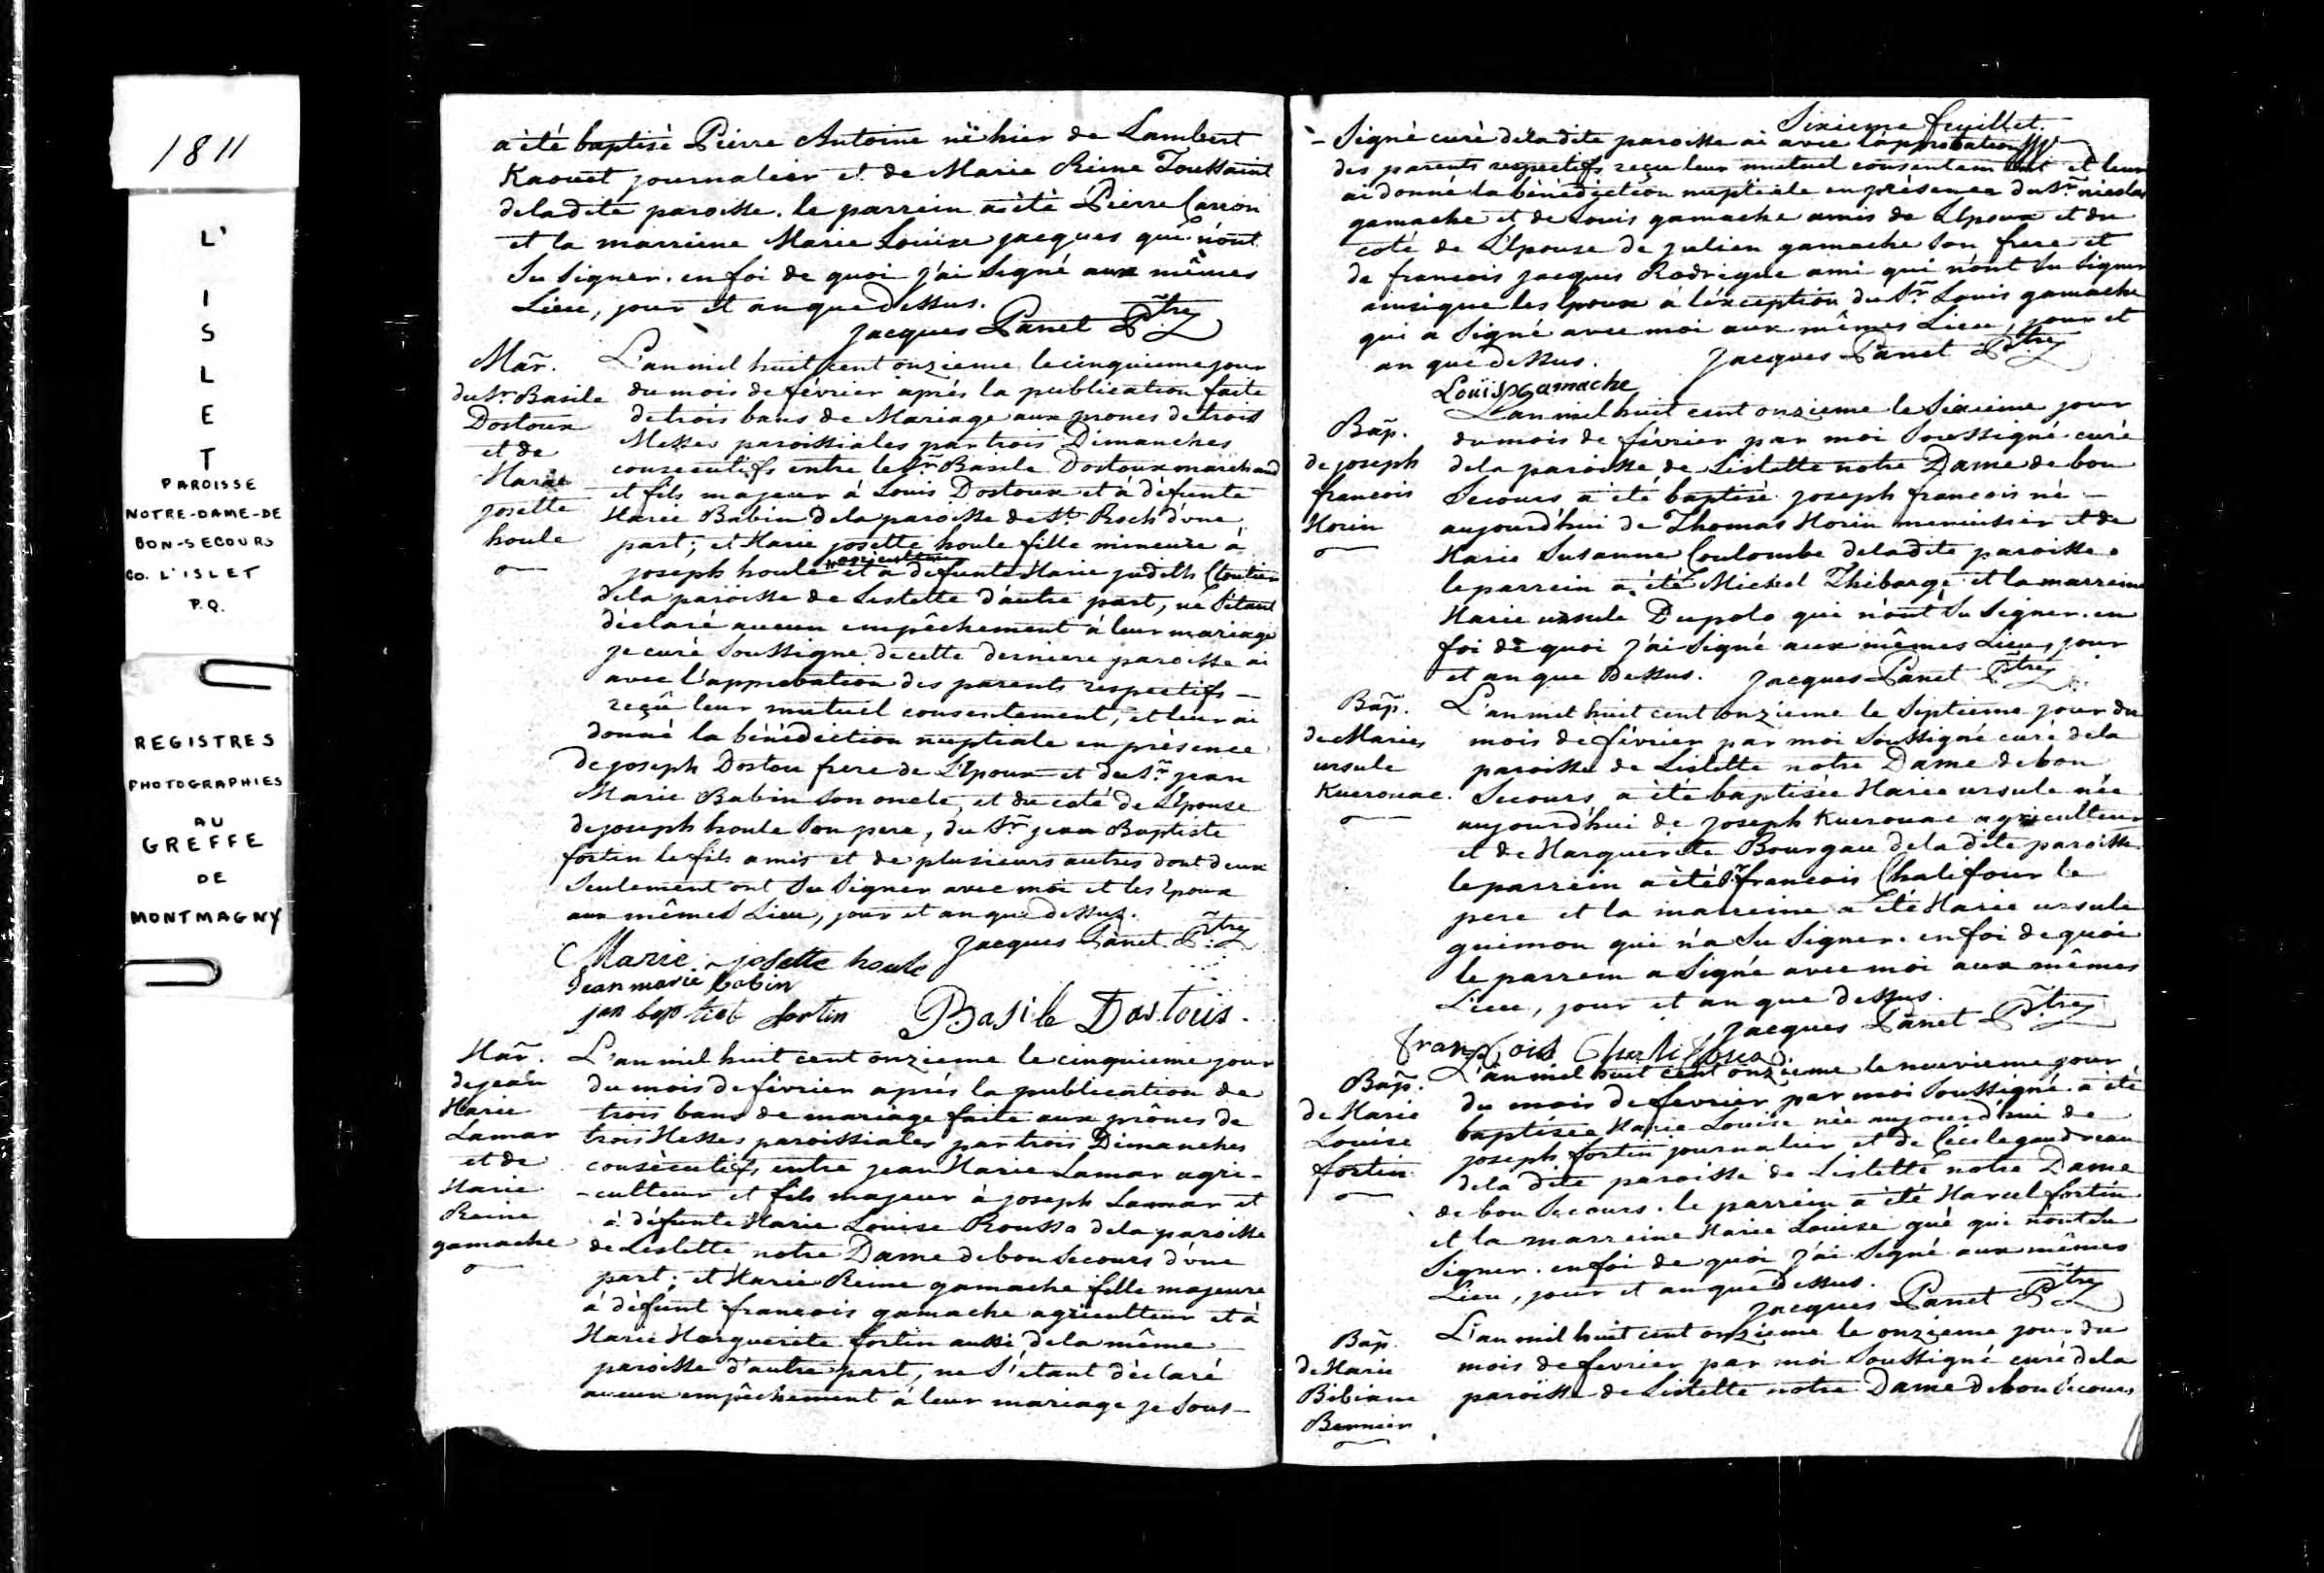 1811
L'
I
S
L
E
T
PAROISSE
NOTRE-DAME-DE
BON-SECOURS
CO. L'ISLET
P.Q.
REGISTRES
PHOTOGRAPHIES
AU
GREFFE
DE
MONTMAGNY
a été baptisé Pierre Antoine né hier de Lambert
Kaouet journalier et de Marie Reine Toussaint
de la dite paroisse. le parrein a été Pierre Carron
et la marreine Marie Louise jacques qui n'ont
Su Signer. en foi de quoi j'ai Signé aux mêmes
Lieu, jour et an que Dessus.
Jacques Panet Ptre
Mar.
du Sr. Basile
Dostoux
et de
Marie
josette
houle
L'an mil huit cent onzieme le cinquieme jour
du mois de février aprés la publication faite
de trois bans de Mariage aux prones de trois
Messes paroissiales par trois Dimanches
consecutifs entre le Sr. Basile Dostoux marchand
et fils majeur à Louis Dostoux et à défunte
Marie Babin de la paroisse de St. Roch d'une
part; et Marie josette houle fille mineure à
joseph houle et à defunte Marie judith Cloutier
de la paroisse de Lislette d'autre part, ne S'étant
déclaré aucun empêchement à leur mariage
je curé Soussigne de cette derniere paroisse ai
avec l'approbation des parents respectifs –
reçû leur mutuel consentement, et leur ai
donné la bénédiction nuptiale en présence
de joseph Dostou frere de L'Epoux et du Sr. jean
Marie Babin Son oncle, et du coté de L'Epouse
de joseph houle Son pere, du Sr. jean Baptiste
fortin le fils amis et de plusieurs autres dont deux
Seulement ont Su Signer avec moi et les époux
aux mêmes Lieu, jour et an que dessus.
Jacques Panet Ptre
Marie josette houle
Jean marie babin
jan baptiste fortin Basile Dostoüs.
Mar.
de jean
Marie
Lamar
et de
Marie
Reine
gamache
L'an mil huit cent onzieme le cinquieme jour
du mois de février aprés la publication de
trois bans de mariage faite aux prônes de
trois Messes paroissiales par trois Dimanches
consécutifs entre jean Marie Lamar agri-
-culteur et fils majeur à joseph Lamar et
à défunte Marie Louise Rousso de la paroisse
de Lislette notre Dame de bon Secours d'une
part; et Marie Reine gamache fille majeure
à défunt francois gamache agriculteur et à
Marie Marguerite fortin aussi de la même
paroisse d'autre part, ne S'étant déclaré
aucun empêchement à leur mariage je Sous-
Sixieme feuillet.
– Signé curé de la dite paroisse ai avec l'approbation
des parents respectifs reçu leur mutuel consentement et leur
ai donné la bénédiction nuptiale en présence du Sr. nicolas
gamache et de Louis gamache amis de L'Epoux et du
coté de L'Epouse de julien gamache Son frere et
de francois jacques Rodrigue ami qui n'ont Su Signer
ainsi que les Epoux à l'exception du Sr. Louis gamache
qui a Signé avec moi aux mêmes Lieu, jour et
an que dessus. Jacques Panet Ptre
Louis Gamache
Bap.
de joseph
francois
Morin
L'an mil huit cent onzieme le Sixieme jour
du mois de février par moi Soussigné curé
de la paroisse de Lislette notre Dame de bon
Secours a été baptisé joseph francois né –
aujourd'hui de Thomas Morin menuisier et de
Marie Susanne Coulombe de la dite paroisse.
le parrein a été Michel Thibargé et la marreine
Marie ursule Dupolo qui n'ont Su Signer. en
foi de quoi j'ai Signé aux mêmes Lieu, jour
et an que Dessus. Jacques Panet Ptre
Bap.
de Marie
ursule
Kuerouac.
L'an mil huit cent onzieme le Septieme jour du
mois de février par moi Soussigné curé de la
paroisse de Lislette notre Dame de bon
Secours a été baptisée Marie ursule née
aujourd'hui de joseph Kuerouac agriculteur
et de Marguerite Bourgau de la dite paroisse
le parrein a été Sr francois Chalifour le
pere et la marreine a été Marie ursule
guimon qui n'a Su Signer. en foi de quoi
le parrein a Signé avec moi aux mêmes
Lieu, jour et an que dessus.
Jacques Panet Ptre
François
Bap.
de Marie
Louise
fortin
L'an mil huit cent onzieme le neuvieme jour
du mois de fevrier par moi Soussigné a été
baptisée Marie Louise née aujourd'hui de
joseph fortin journalier et de Cécile gaudreau
de la dite paroisse de Lislette notre Dame
de bon Secours. le parrein a été Marcel fortin
et la marreine Marie Louise gué qui n'ont Su
Signer. en foi de quoi j'ai Signé aux mêmes
Lieu, jour et an que Dessus.
Jacques Panet Ptre
Bap.
de Marie
Bibiane
Bernier
L'an mil huit cent onzieme le onzieme jour du
mois de fevrier par moi Soussigné curé de la
paroisse de Lislette notre Dame de bon Secours